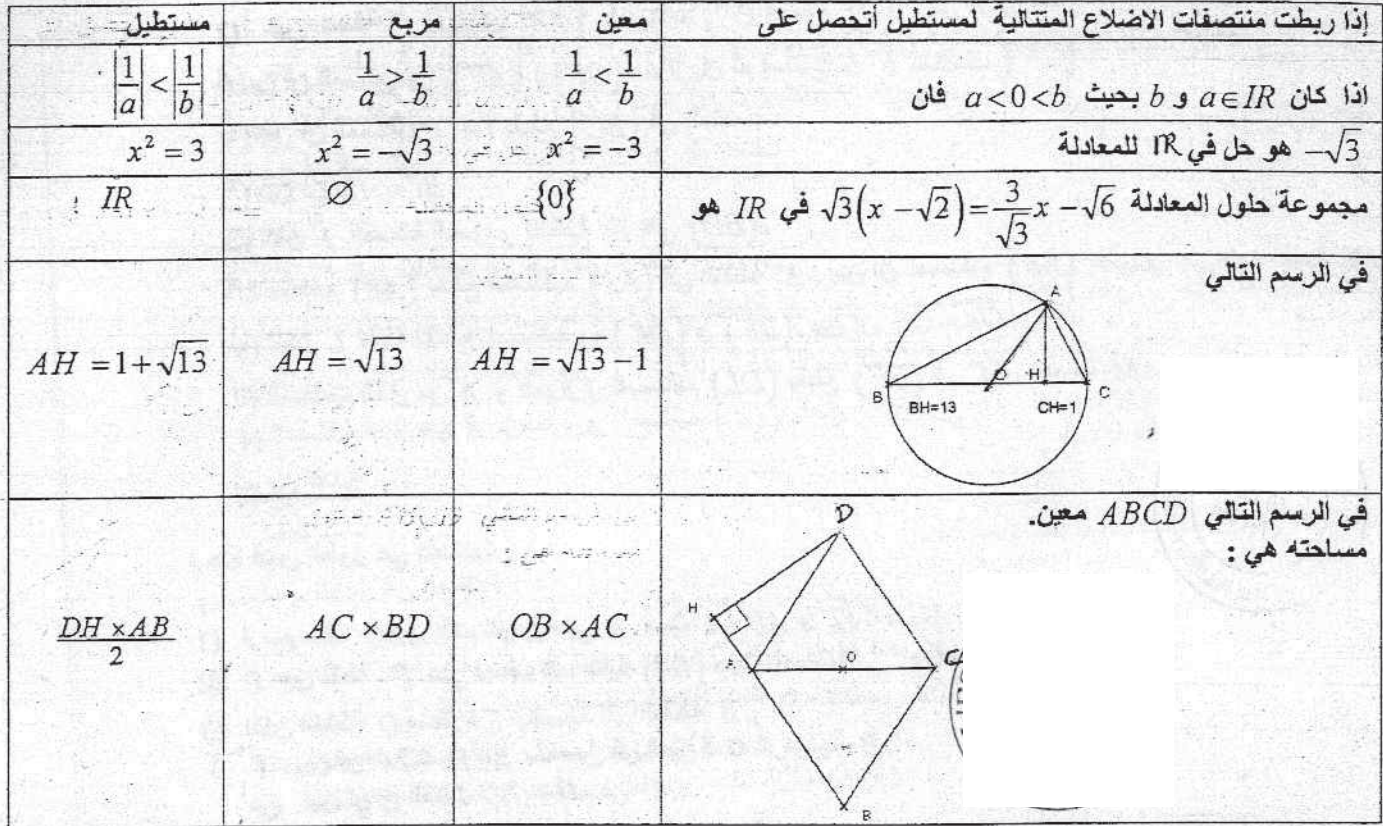 إذا ربطت منتصفات الاضلاع المتتالية لمستطيل أتحصل على معين مربع مستطيل
اذا كان a∈IR و b بحيث a<0<b فان 1/a < 1/b 1/a > 1/b |1/a| < |1/b|
-√3 هو حل في IR للمعادلة x² = -3 x² = -√3 x² = 3
مجموعة حلول المعادلة √3(x - √2) = 3/√3 x - √6 في IR هو {0} ∅ IR
في الرسم التالي
A
B O H C
BH=13 CH=1
AH = √13 - 1 AH = √13 AH = 1 + √13
في الرسم التالي ABCD معين.
مساحته هي :
D
H
A O C
B
OB × AC AC × BD DH × AB / 2